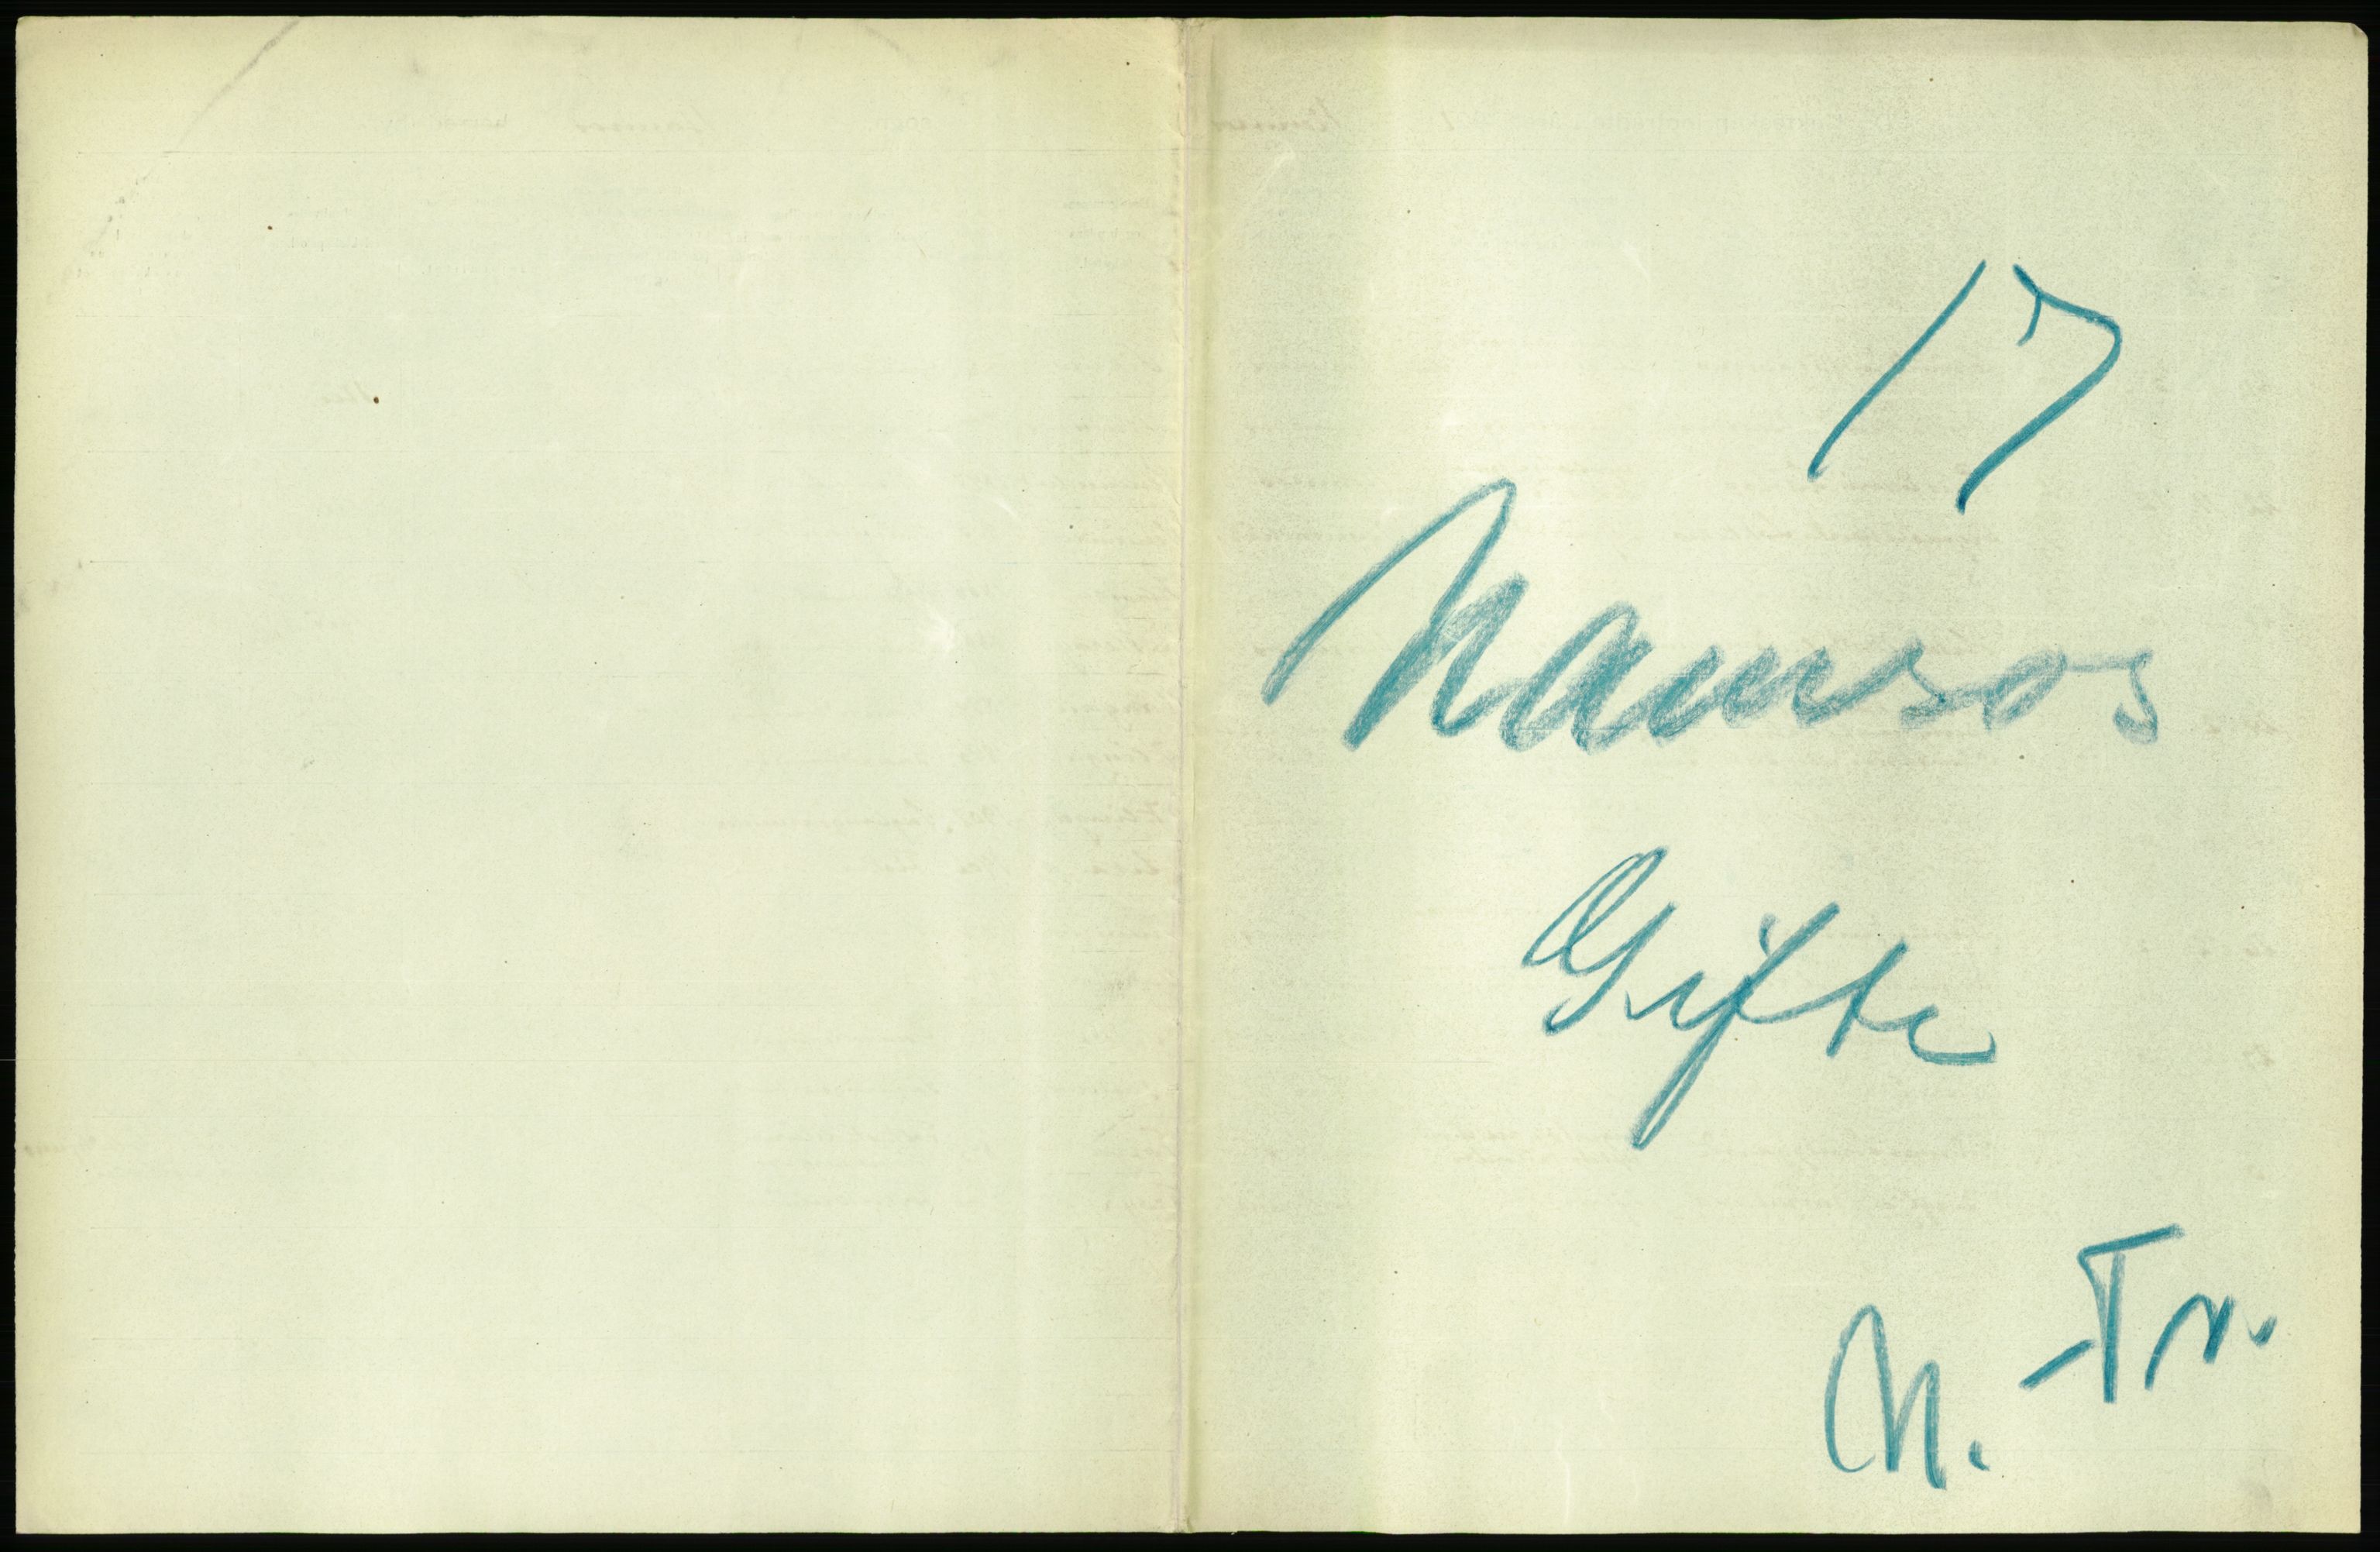 17
Namsos
Gifte
N.-Tr.